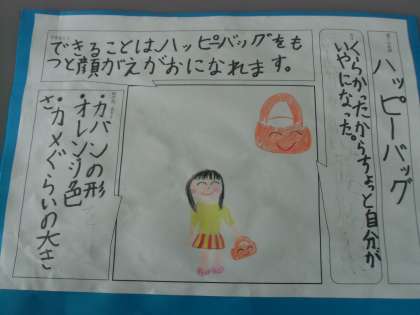 ハッピーバッグ
くらかったからちょっと自分が
いやになった。
できることはハッピーバッグをも
つと顔がえがおになれます。
・カバンの形
・オレンジ色
・カメぐらいの大き
さ